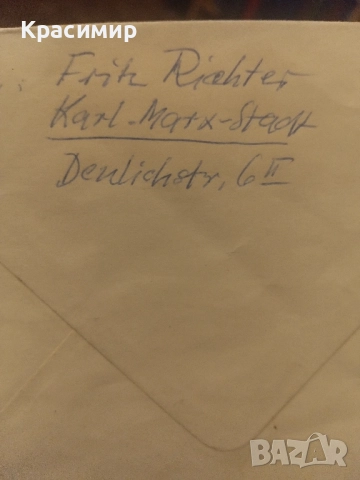 Красимир
Fritz Richter
Karl-Marx-Stadt
Denlichstr, 6 II
BAZAR